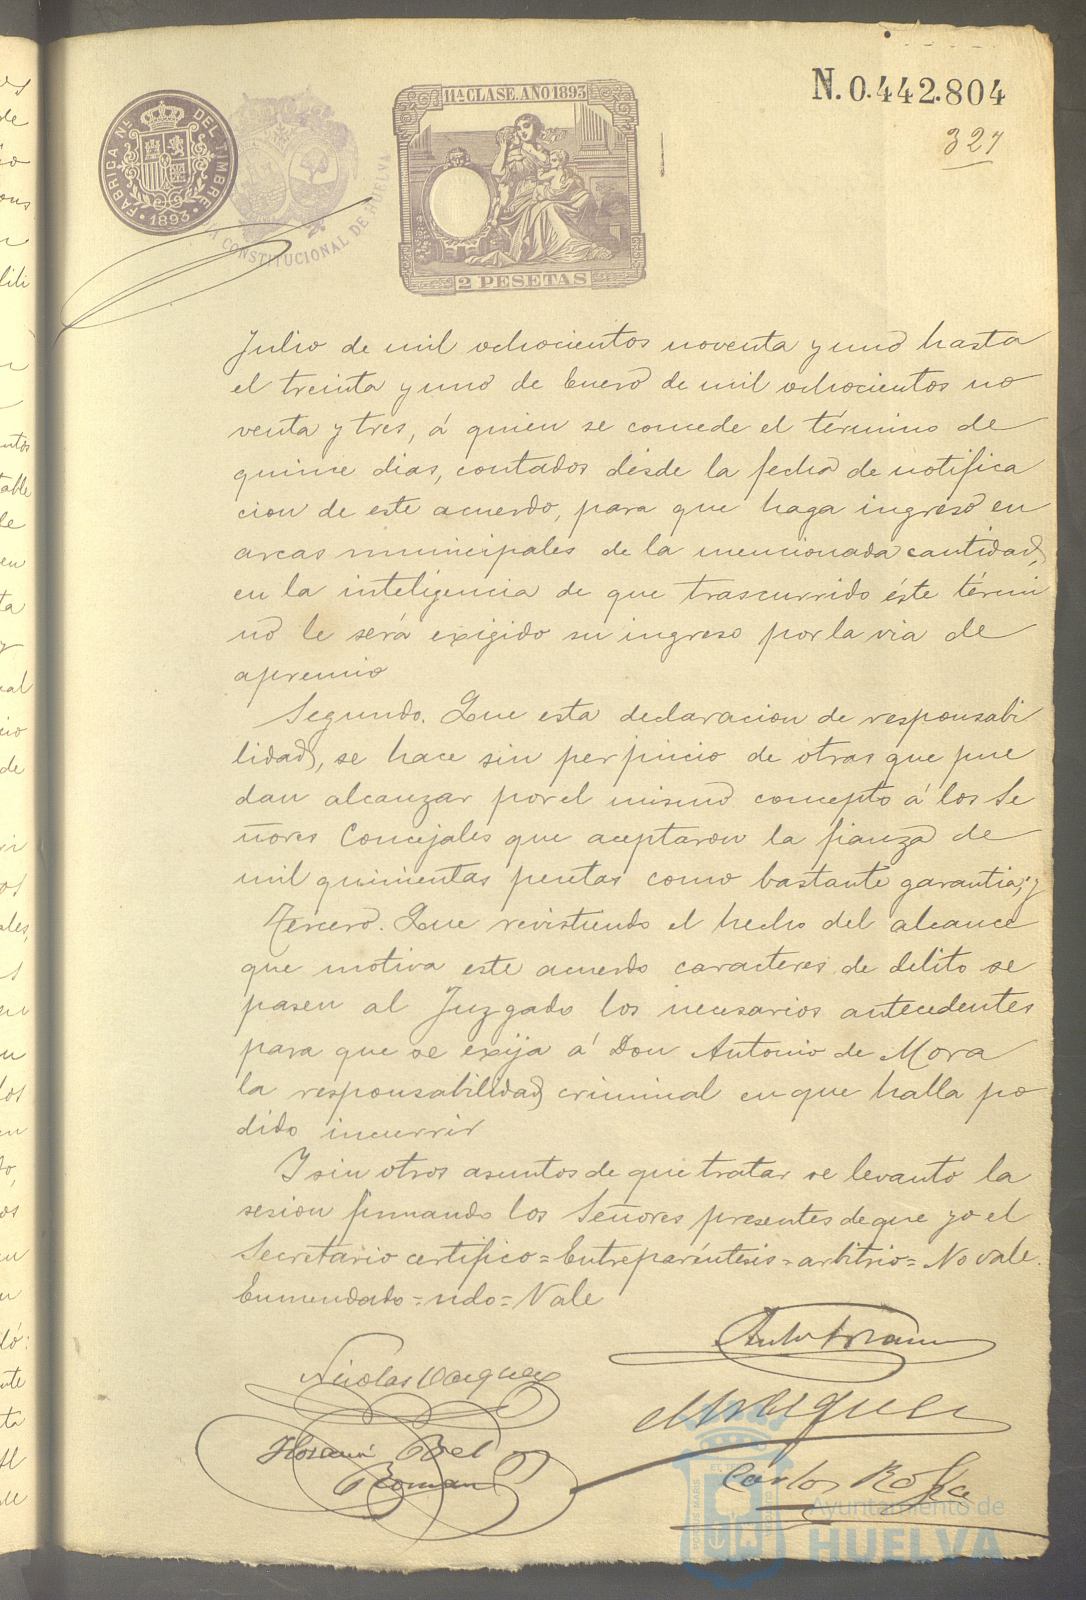 N. 0.442.804
327
11ª CLASE. AÑO 1893
FABRICA Nˡ DEL TIMBRE
1893
CONSTITUCIONAL DE HUELVA
2 PESETAS
Julio de mil ochocientos noventa y uno hasta
el treinta y uno de Enero de mil ochocientos no
venta y tres, á quien se concede el término de
quince dias, contados desde la fecha de notifica
cion de este acuerdo, para que haga ingreso en
arcas municipales de la mencionada cantidad,
en la inteligencia de que trascurrido éste térmi
no le será exigido su ingreso por la via de
apremio
Segundo. Que esta declaracion de responsabi
lidad, se hace sin perjuicio de otras que pue
dan alcanzar por el mismo concepto á los Se
ñores Concejales que aceptaron la fianza de
mil quinientas pesetas como bastante garantia; y
Tercero. Que revistiendo el hecho del alcance
que motiva este acuerdo caracteres de delito se
pasen al Juzgado los necesarios antecedentes
para que se exija á Don Antonio de Mora
la responsabilidad criminal en que halla po
dido incurrir
I sin otros asuntos de que tratar se levanto la
sesion firmando los Señores presentes de que yo el
Secretario certifico = Entreparéntesis = arbitrio = No vale.
Enmendado = ndo = Vale
Nicolas Vazquez
Bel
Roman
Carlos
Ayuntamiento de
HUELVA